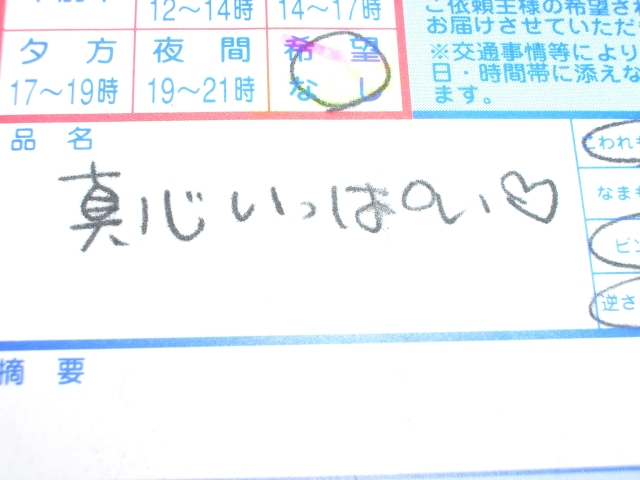 12〜14時 14〜17時
夕方 夜間 希望なし
17〜19時 19〜21時
ご依頼主様の希望
お届けさせていただ
※交通事情等により
日・時間帯に添えな
ます。
品名
真心いっぱい♡
こわれも
なまも
ビン
逆さ
摘要